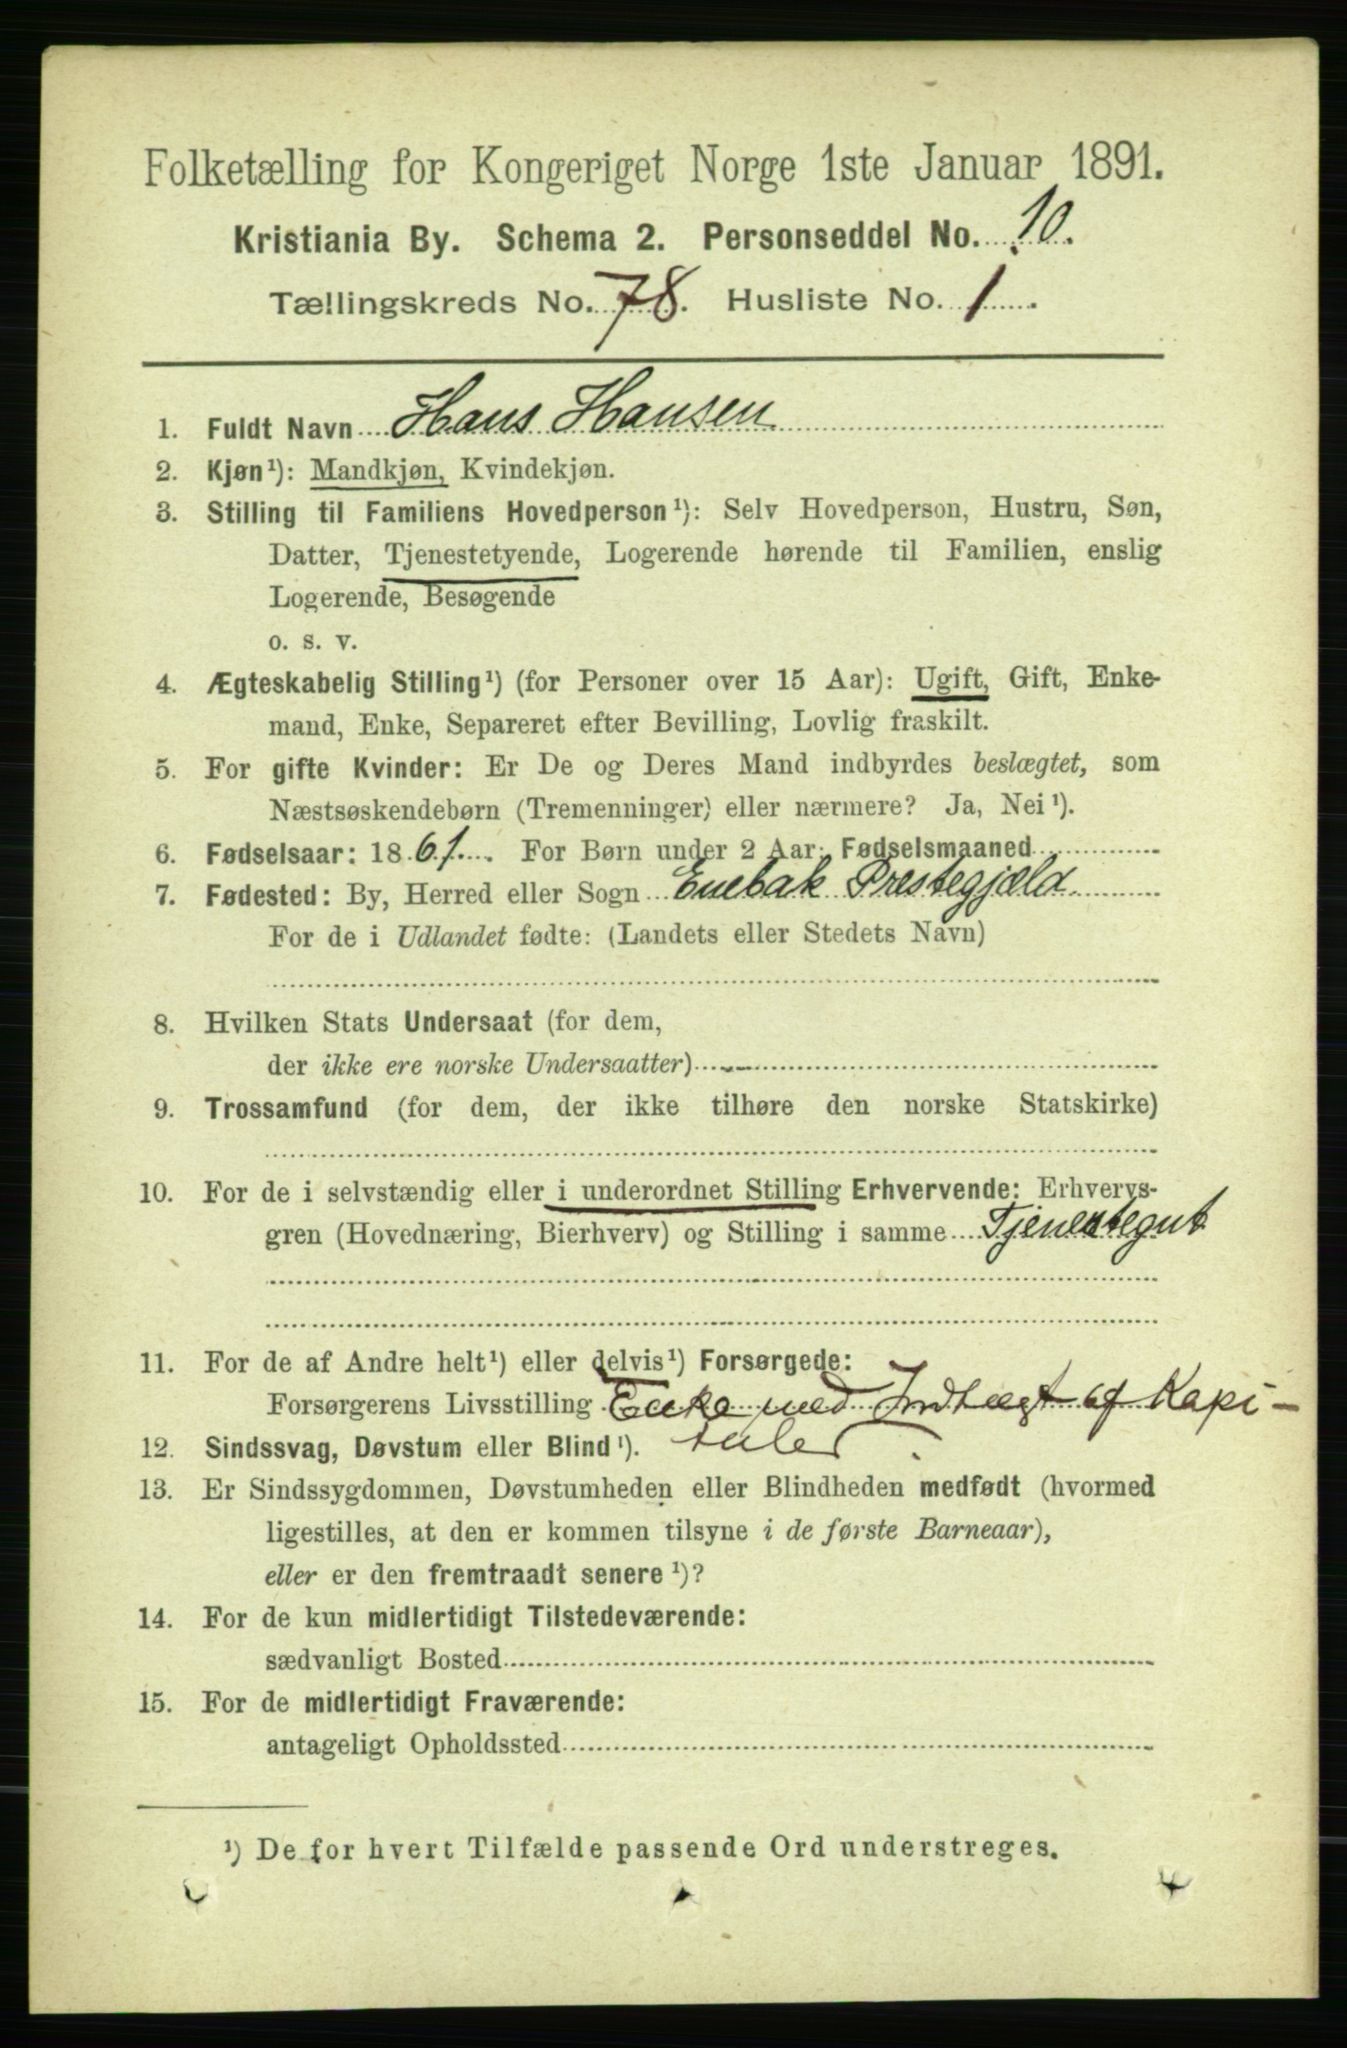 Folketælling for Kongeriget Norge 1ste Januar 1891.
Kristiania By. Schema 2. Personseddel No. 10.
Tællingskreds No. 78. Husliste No. 1.
1. Fuldt Navn Hans Hansen
2. Kjøn¹): Mandkjøn, Kvindekjøn.
3. Stilling til Familiens Hovedperson¹): Selv Hovedperson, Hustru, Søn,
Datter, Tjenestetyende, Logerende hørende til Familien, enslig
Logerende, Besøgende
o. s. v.
4. Ægteskabelig Stilling¹) (for Personer over 15 Aar): Ugift, Gift, Enke-
mand, Enke, Separeret efter Bevilling, Lovlig fraskilt.
5. For gifte Kvinder: Er De og Deres Mand indbyrdes beslægtet, som
Næstsøskendebørn (Tremenninger) eller nærmere? Ja, Nei¹).
6. Fødselsaar: 1861. For Børn under 2 Aar: Fødselsmaaned
7. Fødested: By, Herred eller Sogn Enebak Prestegjæld
For de i Udlandet fødte: (Landets eller Stedets Navn)
8. Hvilken Stats Undersaat (for dem,
der ikke ere norske Undersaatter)
9. Trossamfund (for dem, der ikke tilhøre den norske Statskirke)
10. For de i selvstændig eller i underordnet Stilling Erhvervende: Erhvervs-
gren (Hovednæring, Bierhverv) og Stilling i samme Tjenestegut
11. For de af Andre helt¹) eller delvis¹) Forsørgede:
Forsørgerens Livsstilling Enke med Indtægt af Kapi-
12. Sindssvag, Døvstum eller Blind¹). taler.
13. Er Sindssygdommen, Døvstumheden eller Blindheden medfødt (hvormed
ligestilles, at den er kommen tilsyne i de første Barneaar),
eller er den fremtraadt senere¹)?
14. For de kun midlertidigt Tilstedeværende:
sædvanligt Bosted
15. For de midlertidigt Fraværende:
antageligt Opholdssted
¹) De for hvert Tilfælde passende Ord understreges.